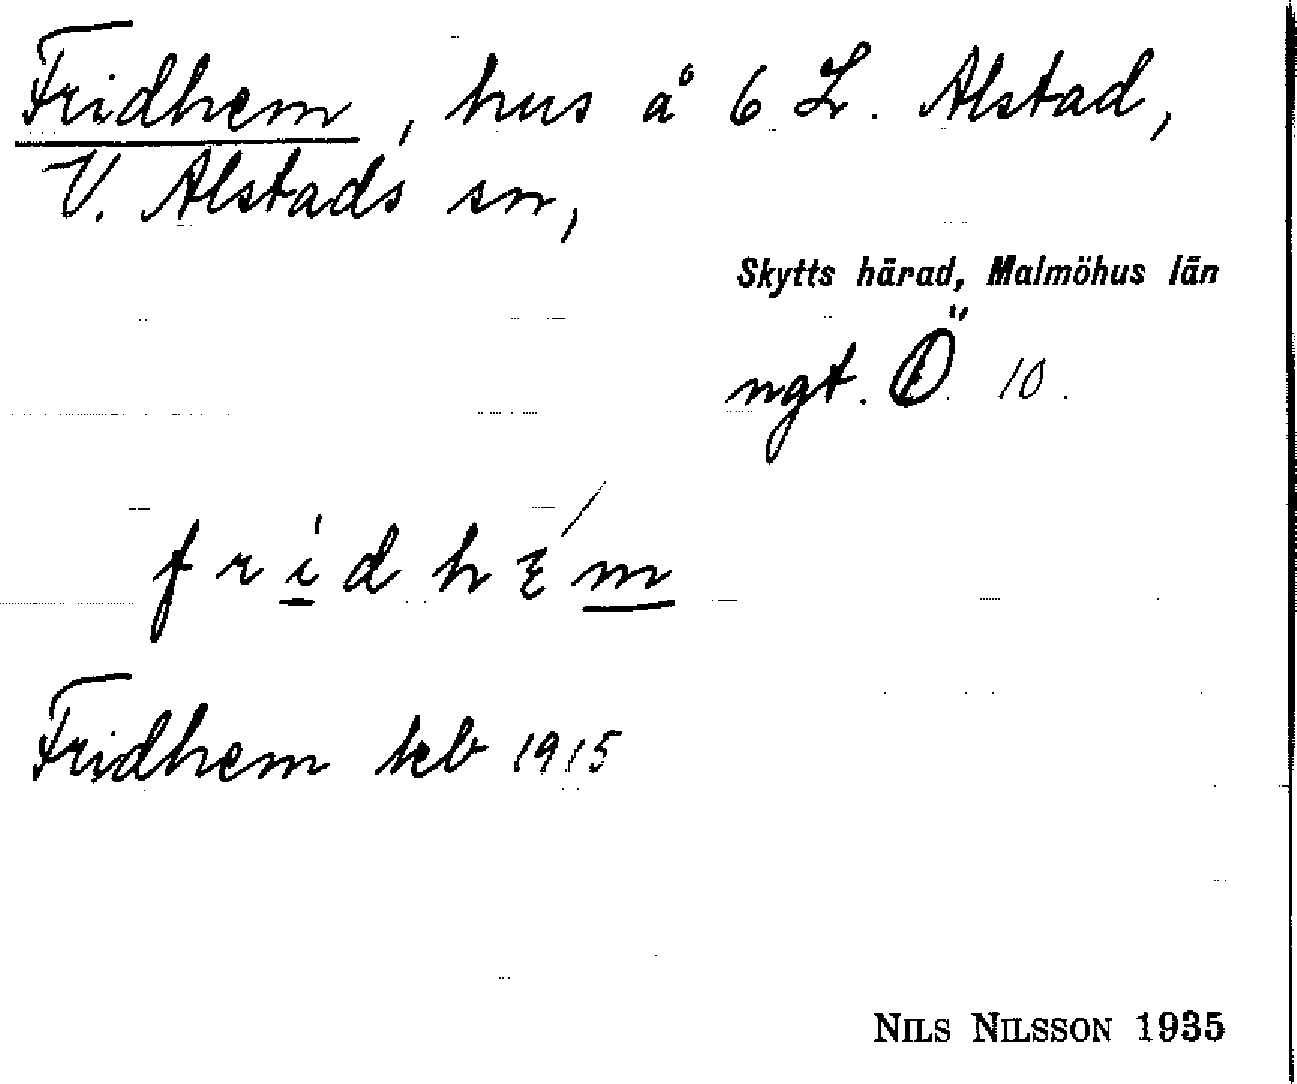 Fridhem, hus å 6 L. Alstad,
V. Alstads sn,
Skytts härad, Malmöhus län
ngt. Ö 10.
fridhɛ́m
Fridhem keb 1915
NILS NILSSON 1935